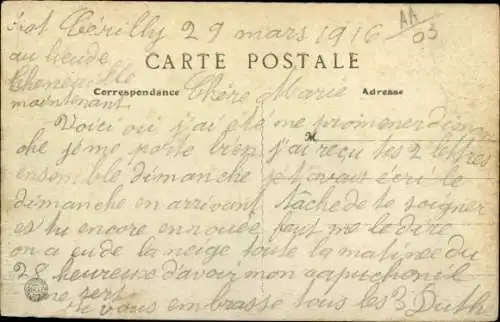 Cérilly 29 mars 1916
AA
03
au lieu de
CARTE POSTALE
maintenant
Correspondance Chère Marie Adresse
Voici où j'ai été me promener diman
che je me porte bien j'ai reçu tes 2 lettres
ensemble dimanche je t'avais écri le
dimanche en arrivant tâche de te soigner
es tu encore enrouée faut me le dire
on a eu de la neige toute la matinée du
28 heureuse d'avoir mon capuchon il
me sert
je vous embrasse tous les 3